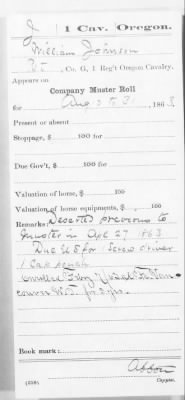 J | 1 Cav. | Oregon.
William Johnson
Pvt., Co. G, 1 Reg't Oregon Cavalry.
Appears on
Company Muster Roll
for Aug 3 to 3, 1863.
Present or absent
Stoppage, $ 100 for
Due Gov't, $ 100 for
Valuation of horse, $ 100
Valuation of horse equipments, $ 100
Remarks: Deserted previous to
muster in Apl 27, 1863
Due U S for 1 Screw driver
1 Cap pouch
Enrolled Feby at Van-
couver W.T. for 3 yrs.
Book mark:
Abbott
(358) Copyist.